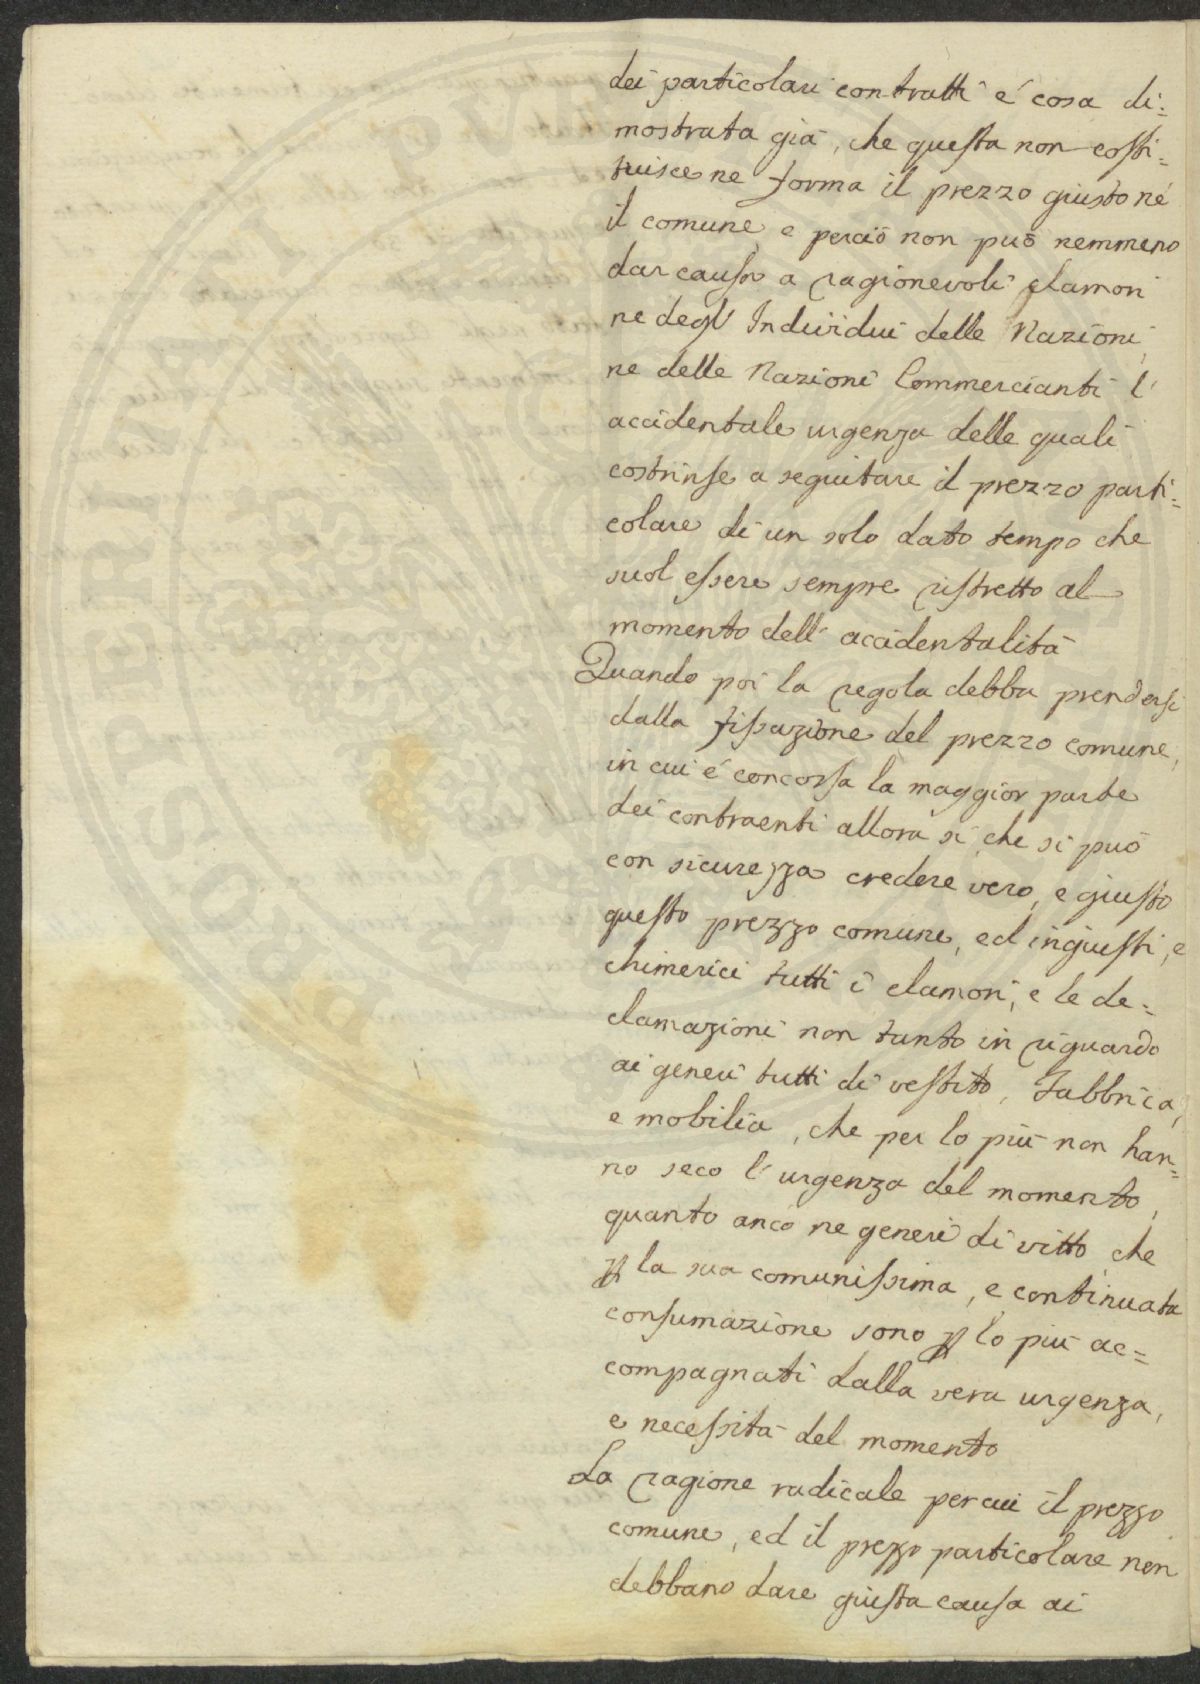 dei particolari contratti é cosa di=
mostrata già, che questa non costi=
tuisce ne forma il prezzo giusto né
il comune, e perciò non può nemmeno
dar causa a ragionevoli clamori
ne degl' Individui delle Nazioni,
ne delle Nazioni Commercianti l'
accidentale urgenza delle quali
costrinse a seguitare il prezzo parti=
colare di un solo dato tempo che
suol essere sempre ristretto al
momento dell' accidentalità
Quando poi la regola debba prendersi
dalla fissazione del prezzo comune,
in cui é concorsa la maggior parte
dei contraenti allora si che si può
con sicurezza credere vero, e giusto
questo prezzo comune, ed ingiusti, e
chimerici tutti i clamori, e le de=
clamazioni non tanto in riguardo
ai generi tutti di vestito, Fabbrica,
e mobilia, che per lo più non han=
no seco l'urgenza del momento,
quanto anco ne generi di vitto, che
p la sua comunissima, e continuata
consumazione sono p lo più ac=
compagnati dalla vera urgenza,
e necessità del momento
La ragione radicale per cui il prezzo
comune, ed il prezzo particolare non
debbano dare giusta causa ai